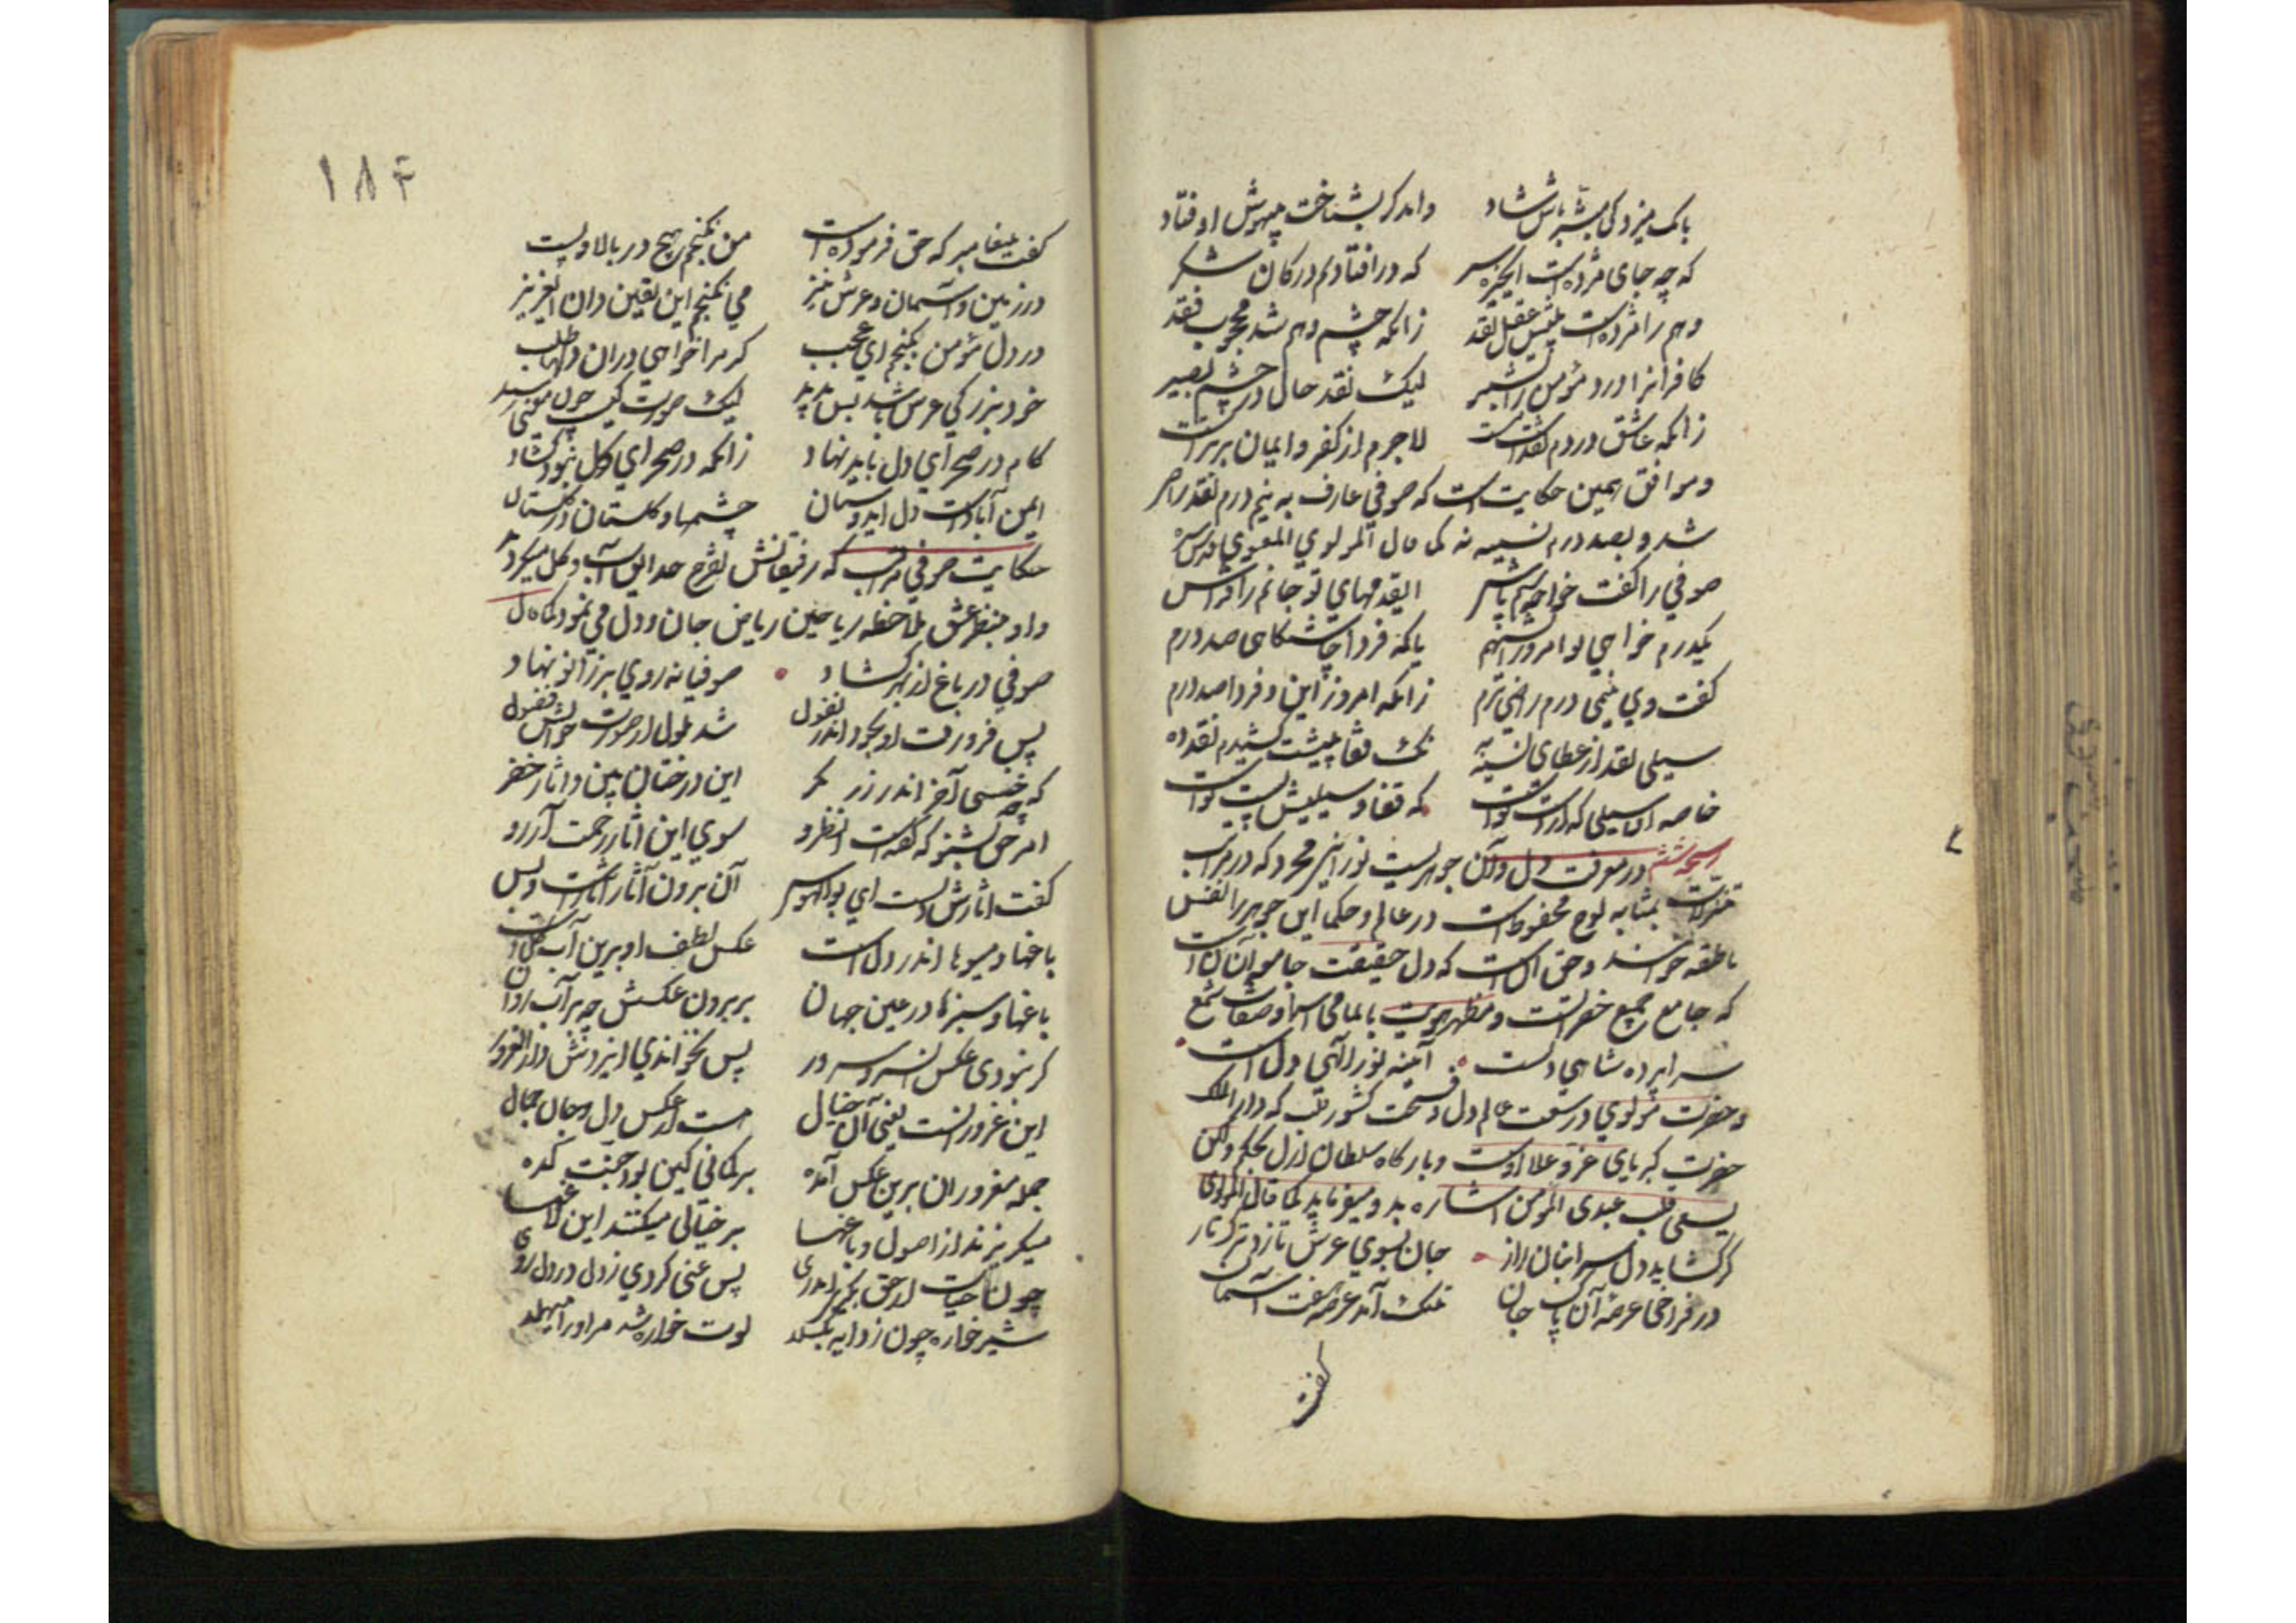 بانک میزد کی مبشر باش شاد واندکر بشناخت بیهوش اوفتاد
که چه جای مژده است ای خیره سر که در افتادم در کان شکر
وهم را مژده است پیش عقل نقد زانکه چشم وهم شد محجوب فقد
کافرانرا درد مؤمن را بشیر لیک نقد حال در چشم بصیر
زانکه عاشق در دم نقدست مست لاجرم از کفر و ایمان برترست
و موافق همین حکایت است که صوفی عارف به نیم درم نقد راضی
شد و بصد درم نسیه نه کما قال المولوی المعنوی قدس سره
صوفی را کفت خواجه سیم پاش ای قدمهای تو جانم را فراش
یکدرم خواهی تو امروز ای شهم یا که فردا چاشتکاهی صد درم
کفت وی نیمی درم راضی ترم زانکه امروز این و فردا صد درم
سیلی نقد از عطای نسیه به نک قفا پیشت کشیدم نقد ده
خاصه آن سیلی که از دست تو است که قفا و سیلیش پیست تو است
در معرفت دل و آن جوهریست نورانی مجرد که در مراتب
تنزلات بمثابه لوح محفوظ است در عالم و حکما این جوهر را نفس
ناطقه خوانند و حق آن است که دل حقیقت جامعه آن انسان است
که جامع جمیع حضراتست و مظهر هویت با تمامی اسما و صفات شمع
سراپرده شاهی دلست آینه نور الهی دل است
و حضرت مولوی در سعت عالم دل و فسحت کشور قلب که دار الملک
حضرت کبریای عز و علا اوست و بارکاه سلطان ازل بحکم ولکن
یسعنی قلب عبدی المؤمن اشاره بدو میفرماید کما قال المولوی
کر کشاید دل سر انبان راز جان بسوی عرش تازد ترکتاز
در فراخی عرصه آن پاک جان تنک آمد عرصه هفت آسمان
کفت
۱۸۴
کفت پیغامبر که حق فرموده است من نکنجم هیچ در بالا و پست
در زمین و آسمان و عرش نیز می نکنجم این یقین دان ای عزیز
در دل مؤمن بکنجم ای عجب کر مرا خواهی دران دلها طلب
خود بزرکی عرش باشد بس مدید لیک صورت کیست چون معنی رسید
کام در صحرای دل باید نهاد زانکه در صحرای کل نبود کشاد
ایمن آبادست دل ای دوستان چشمها و کلستان در کلستان
حکایت صوفی مراقب که رفیقانش تفرج حدایق آب و کل میکردند
و او بنظر عشق ملاحظه ریاحین ریاض جان و دل می نمود کما قال
صوفی در باغ از بهر کشاد صوفیانه روی بر زانو نهاد
پس فرو رفت او بخود اندر نغول شد ملول از صورت خوابش فضول
که چه خسبی آخر اندر رز نکر این درختان بین و آثار خضر
امر حق بشنو که کفتست انظروا سوی این آثار رحمت آر رو
کفت آثارش دلست ای بوالهوس آن برون آثار آثارست و بس
باغها و میوها اندر دل است عکس لطف او برین آب و کل است
باغها و سبزها در عین جهان بر برون عکسش چو بر آب روان
کر نبودی عکس آن سر و سرور پس نخواندی ایزدش دار الغرور
این غرور آنست یعنی آن خیال هست از عکس دل و جان جمال
جمله مغروران برین عکس آمده بر کمانی کین بود جنت کده
میکریزند از اصول و باغها بر خیالی میکنند این لاغها
چون حیات از حق بکیری ای روی پس غنی کردی ز دل در دل روی
شیر خواره چون ز دایه بکسلد لوت خواره شد مر او را میهلد